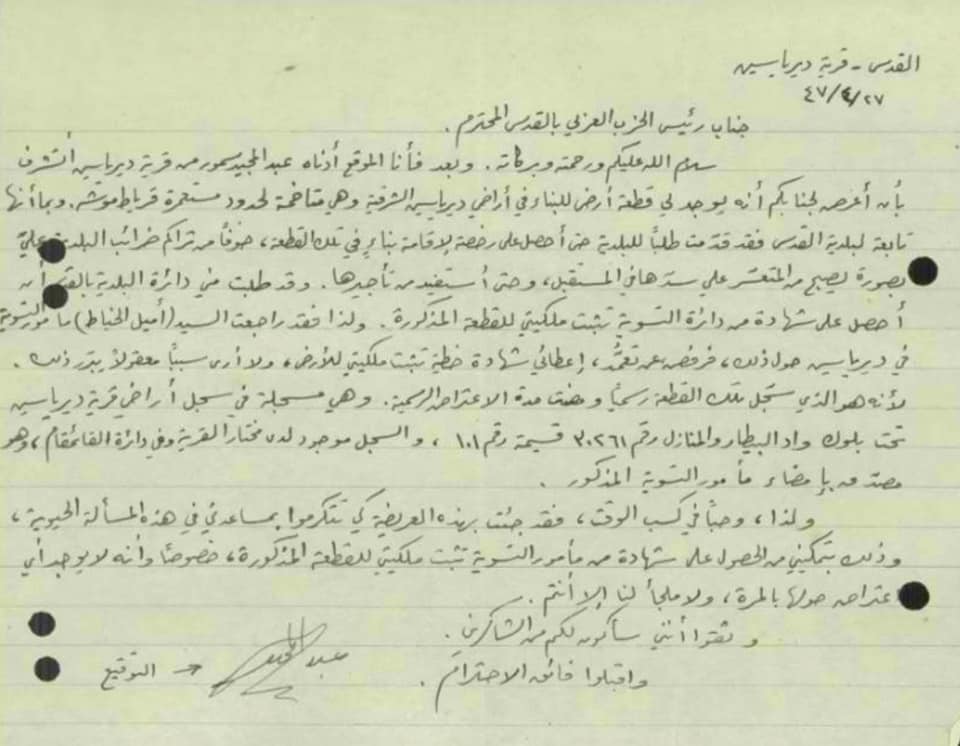 القدس - قرية ديرياسين
٤٧/٤/٢٧
جناب رئيس الحزب العربي بالقدس المحترم.
سلام الله عليكم ورحمته وبركاته. وبعد فأنا الموقع أدناه عبد المجيد سمور من قرية ديرياسين أتشرف
بأن أعرض لجنابكم أنه يوجد لي قطعة أرض للبناء في أراضي ديرياسين الشرقية وهي متاخمة لحدود مستعمرة قرياط موشه. وبما أنها
تابعة لبلدية القدس فقد قدمت طلباً للبلدية حتى أحصل على رخصة لإقامة بناءٍ في تلك القطعة، خوفاً من تراكم ضرائب البلدية عليّ
بصورة يصبح من المتعسّر علي سدّها في المستقبل، وحتى أستفيد من تأجيرها. وقد طلبت مني دائرة البلدية بالقدس أن
أحصل على شهادة من دائرة التسوية تثبت ملكيتي للقطعة المذكورة. ولذا فقد راجعت السيد (أميل الخياط) مأمور التسوية
في ديرياسين حول ذلك، فرفض عن تعمُّد، إعطائي شهادة خطية تثبت ملكيتي للأرض، ولا أرى سبباً معقولاً يبرّر ذلك.
لأنه هو الذي سجّل تلك القطعة رسمياً ومضت مدة الاعتراض الرسمية. وهي مسجلة في سجل أراضي قرية ديرياسين
تحت بلوك واد البيطار والمنازل رقم ٣٠٢٦١ قسيمة رقم ١٠١، والسجل موجود لدى مختار القرية وفي دائرة القائمقام، وهو
مصدق بإمضاء مأمور التسوية المذكور.
ولذا، وحباً في كسب الوقت، فقد جئت بهذه العريضة كي تتكرموا بمساعدتي في هذه المسألة الحيوية،
وذلك بتمكيني من الحصول على شهادة من مأمور التسوية تثبت ملكيتي للقطعة المذكورة، خصوصاً وأنه لا يوجد أي
اعتراض حولها بالمرة، ولا ملجأ لنا إلا أنتم.
وثقوا أنني سأكون لكم من الشاكرين.
واقبلوا فائق الاحترام.
التوقيع ← عبد المجيد